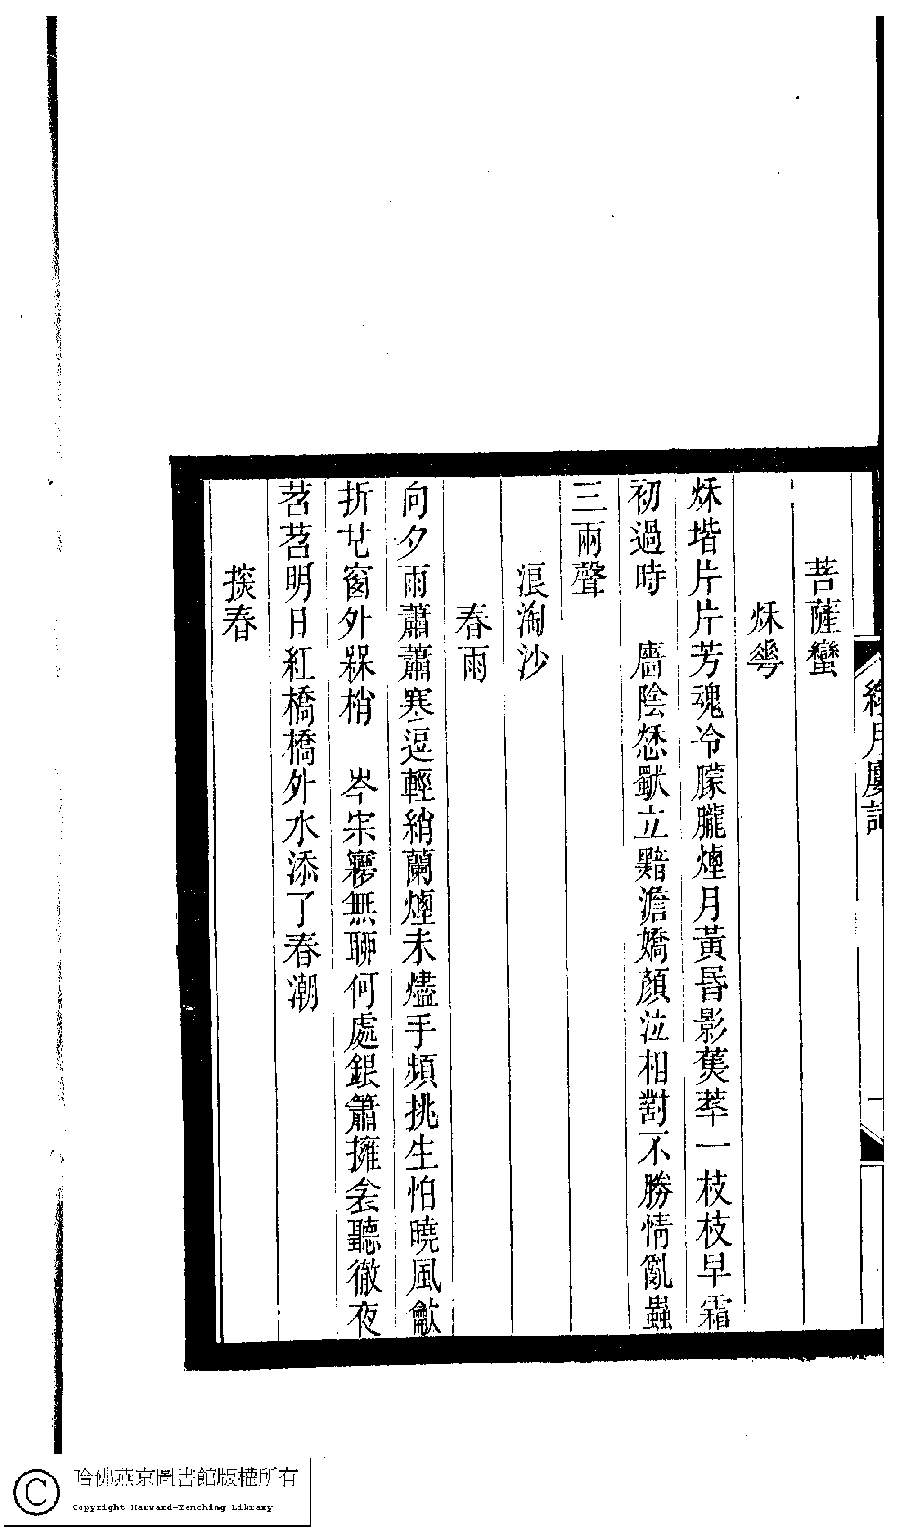 菩薩蠻
秌蕚
秌堦片片芳魂冷朦朧煙月黃昏影蕉萃一枝枝早霜
初過時　廧陰愁獣立黯澹嬌顏泣相對不勝情亂蟲
三兩聲
浪淘沙
春雨
向夕雨蕭蕭寒逗輕綃蘭煙未燼手頻挑生怕曉風龡
折芼窗外槑梢　岑宋寥無聊何處銀簫擁衾聽徹夜
苕苕明日紅橋橋外水添了春潮
餤春
月廔詞
哈佛燕京圖書館版權所有
Copyright Harvard-Yenching Library